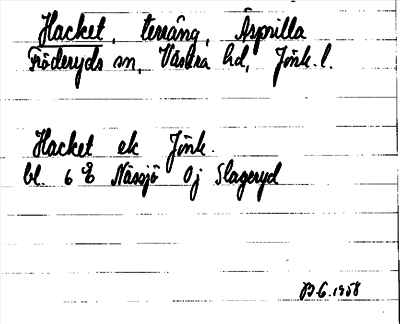 Hacket, terräng, Arprilla
Fröderyds sn, Västra hd, Jönk. l.
Hacket ek Jönk.
bl. 6 E Nässjö Oj Slageryd
1958